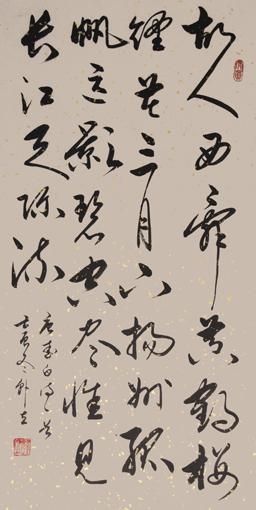 故人西辭黃鶴樓
煙花三月下揚州孤
帆遠影碧空盡惟見
長江天際流
唐李白詩一首
壬寅冬